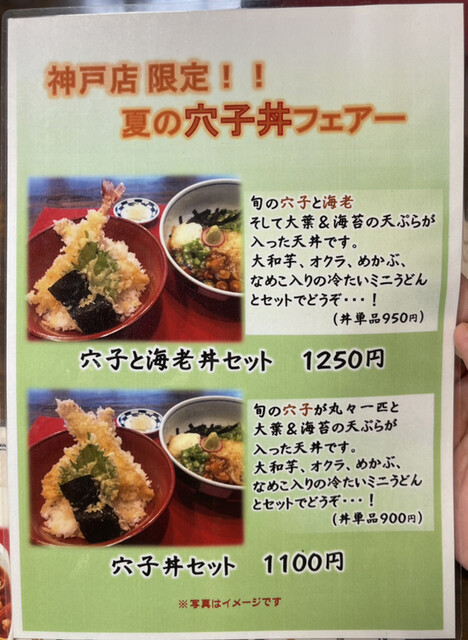 神戸店 限定！！
夏の穴子丼フェアー
旬の穴子と海老
そして大葉＆海苔の天ぷらが
入った天丼です。
大和芋、オクラ、めかぶ、
なめこ入りの冷たいミニうどん
とセットでどうぞ・・・！
(丼単品950円)
穴子と海老丼セット 1250円
旬の穴子が丸々一匹と
大葉＆海苔の天ぷらが
入った天丼です。
大和芋、オクラ、めかぶ、
なめこ入りの冷たいミニうどん
とセットでどうぞ・・・！
(丼単品900円)
穴子丼セット 1100円
※写真はイメージです